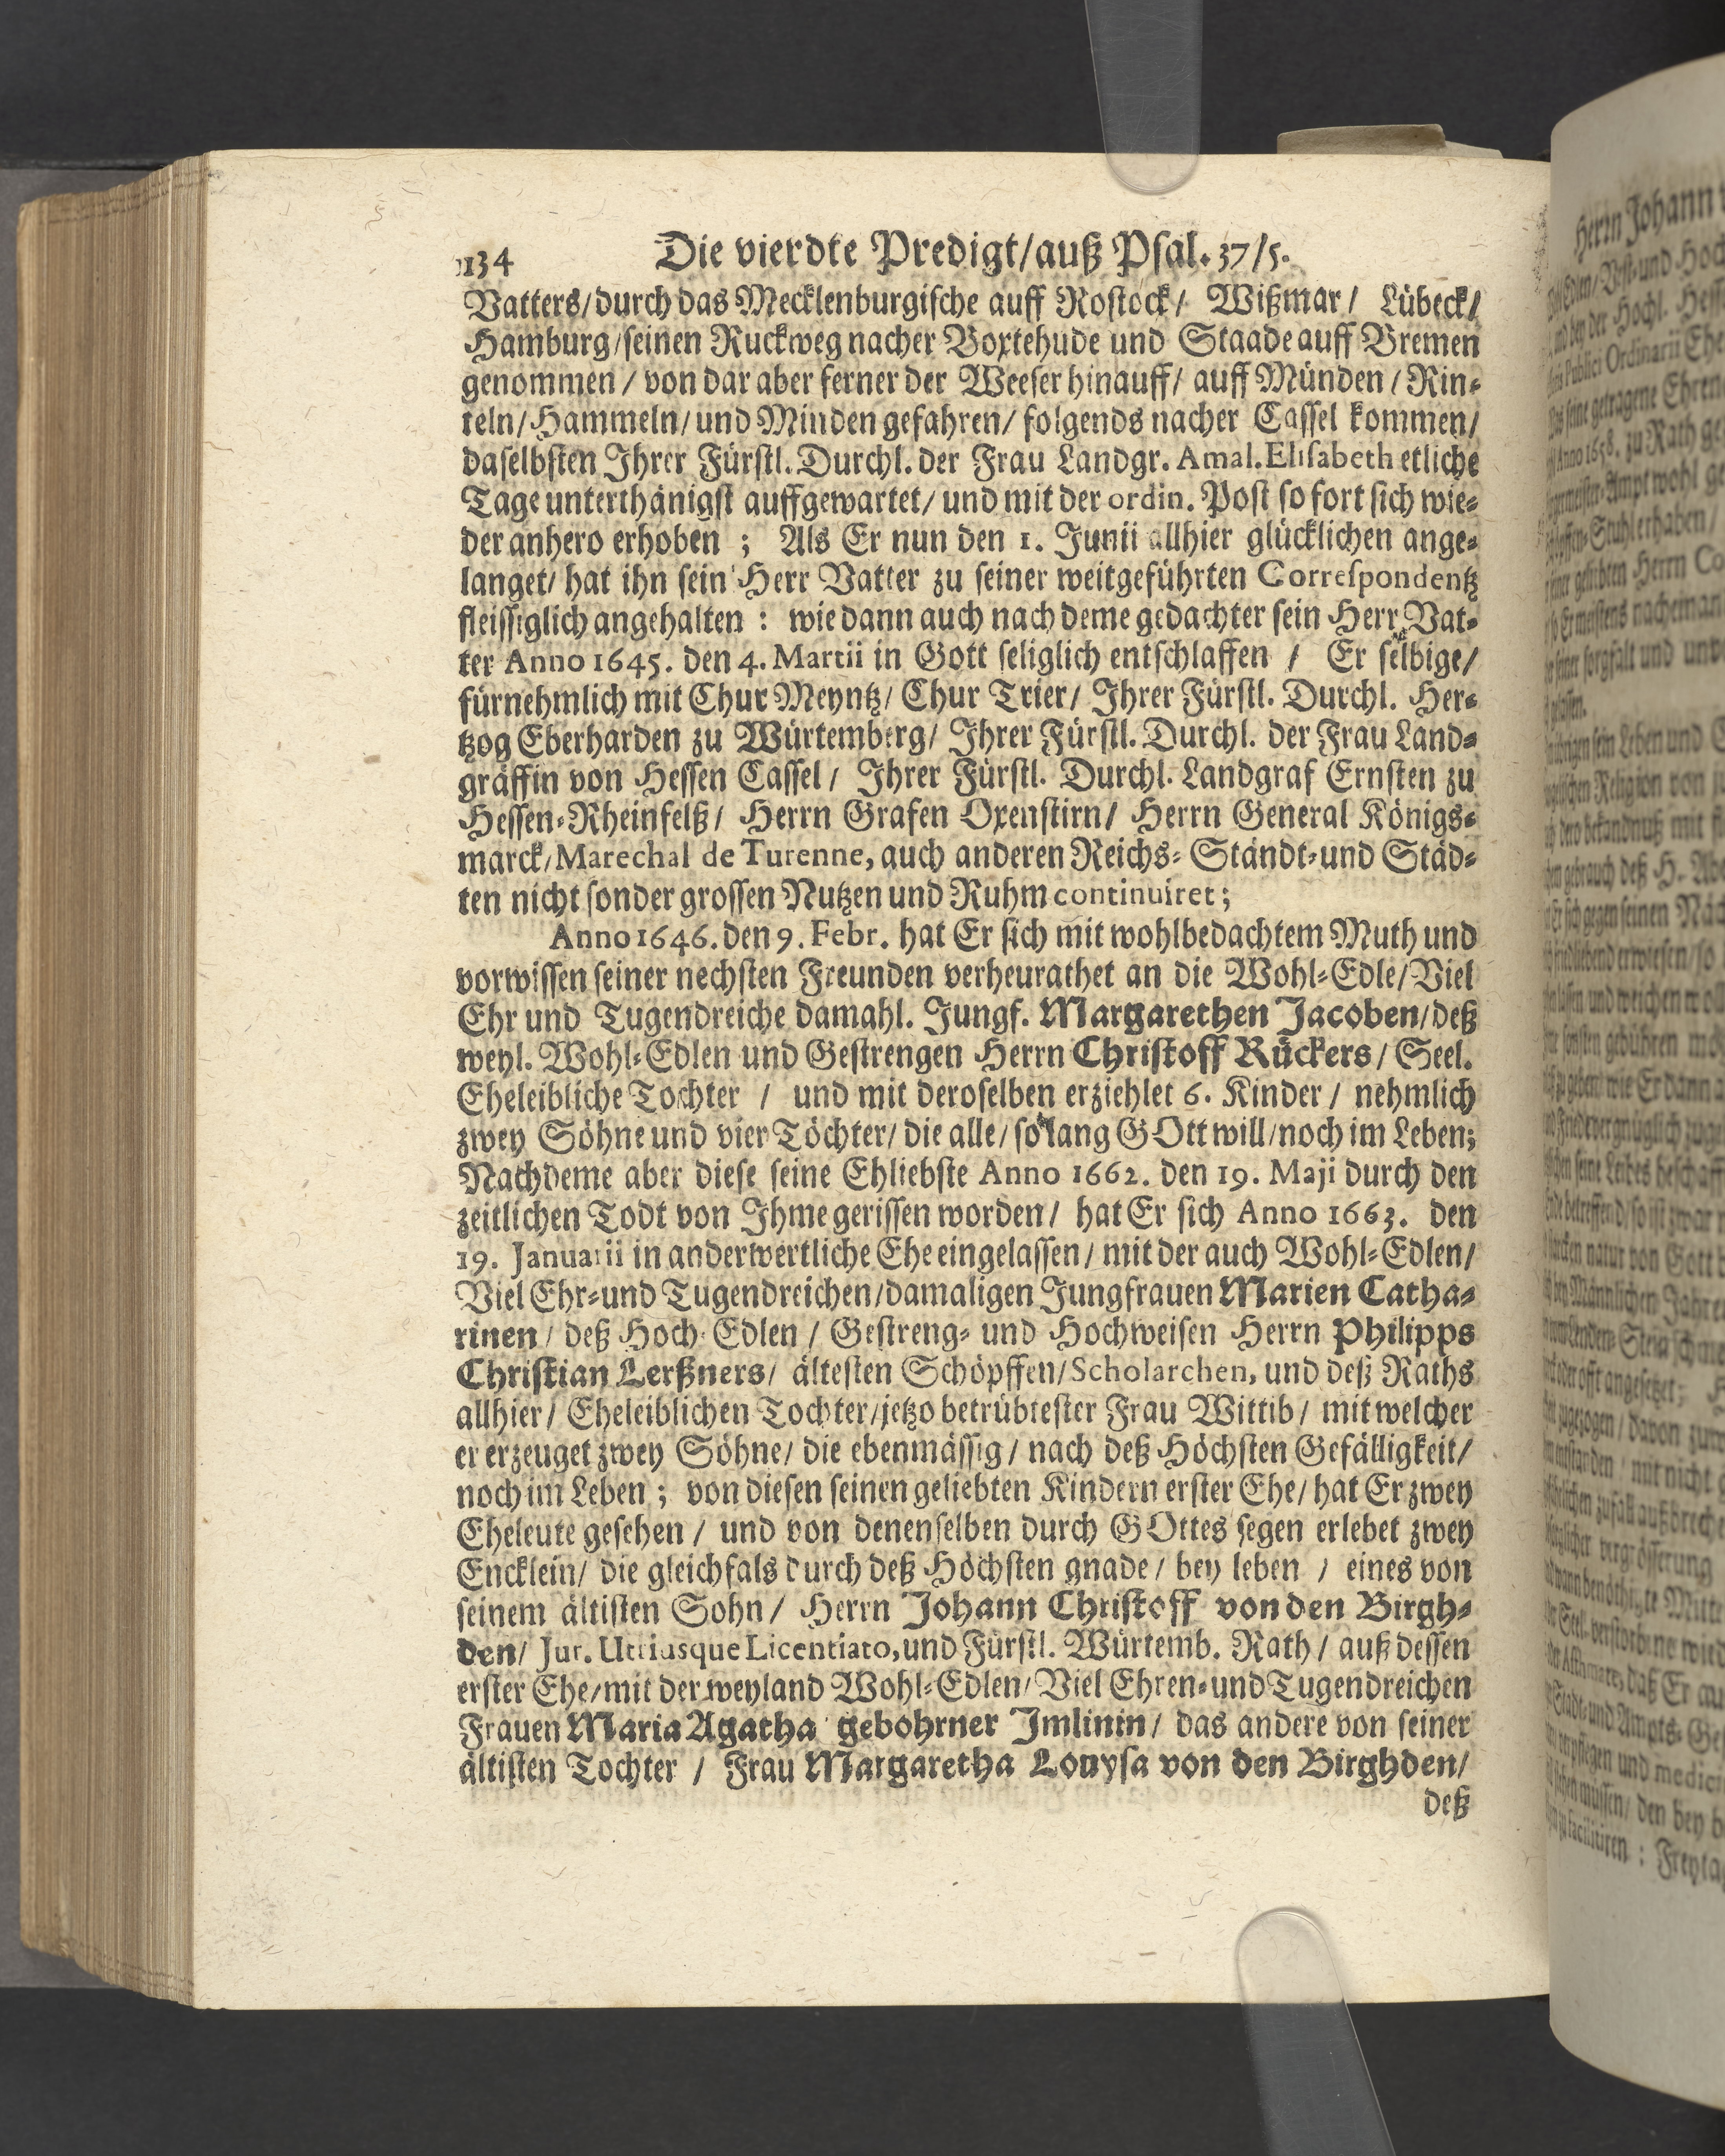 134 Die vierdte Predigt/auß Psal. 37/5.
Vatters/durch das Mecklenburgische auff Rostock/ Wißmar/ Lübeck/
Hamburg/seinen Ruckweg nacher Boxtehude und Staade auff Bremen
genommen/ von dar aber ferner der Weeser hinauff/ auff Münden/Rin-
teln/Hammeln/und Minden gefahren/ folgends nacher Cassel kommen/
daselbsten Ihrer Fürstl. Durchl. der Frau Landgr. Amal. Elisabeth etliche
Tage unterthänigst auffgewartet/ und mit der ordin. Post so fort sich wie-
der anhero erhoben ; Als Er nun den 1. Junii allhier glücklichen ange-
langet/ hat ihn sein Herr Vatter zu seiner weitgeführten Correspondentz
fleissiglich angehalten : wie dann auch nach deme gedachter sein Herr Vat-
ter Anno 1645. den 4. Martii in Gott seliglich entschlaffen / Er selbige/
fürnehmlich mit Chur Meyntz/ Chur Trier/ Ihrer Fürstl. Durchl. Her-
tzog Eberharden zu Würtemberg/ Ihrer Fürstl. Durchl. der Frau Land-
gräffin von Hessen Cassel/ Ihrer Fürstl. Durchl. Landgraf Ernsten zu
Hessen-Rheinfelß/ Herrn Grafen Oxenstirn/ Herrn General Königs-
marck/Marechal de Turenne, auch anderen Reichs- Ständt-und Städ-
ten nicht sonder grossen Nutzen und Ruhm continuiret;
Anno 1646. den 9. Febr. hat Er sich mit wohlbedachtem Muth und
vorwissen seiner nechsten Freunden verheurathet an die Wohl-Edle/Viel
Ehr und Tugendreiche damahl. Jungf. Margarethen Jacoben/deß
weyl. Wohl-Edlen und Gestrengen Herrn Christoff Rückers/ Seel.
Eheleibliche Tochter / und mit deroselben erziehlet 6. Kinder/ nehmlich
zwey Söhne und vier Töchter/ die alle/ so lang GOtt will/noch im Leben;
Nachdeme aber diese seine Ehliebste Anno 1662. den 19. Maji durch den
zeitlichen Todt von Ihme gerissen worden/ hat Er sich Anno 1663. den
19. Januarii in anderwertliche Ehe eingelassen/ mit der auch Wohl-Edlen/
Viel Ehr-und Tugendreichen/damaligen Jungfrauen Marien Catha-
rinen/ deß Hoch-Edlen/ Gestreng- und Hochweisen Herrn Philipps
Christian Lerßners/ ältesten Schöpffen/Scholarchen, und deß Raths
allhier/ Eheleiblichen Tochter/jetzo betrübtester Frau Wittib/ mit welcher
er erzeuget zwey Söhne/ die ebenmässig/ nach deß Höchsten Gefälligkeit/
noch im Leben ; von diesen seinen geliebten Kindern erster Ehe/ hat Er zwey
Eheleute gesehen/ und von denenselben durch GOttes segen erlebet zwey
Encklein/ die gleichfals durch deß Höchsten gnade/ bey leben / eines von
seinem ältisten Sohn/ Herrn Johann Christoff von den Birgh-
den/ Jur. Utriusque Licentiato, und Fürstl. Würtemb. Rath/ auß dessen
erster Ehe/mit der weyland Wohl-Edlen/ Viel Ehren-und Tugendreichen
Frauen Maria Agatha gebohrner Imlinin/ das andere von seiner
ältisten Tochter / Frau Margaretha Louysa von den Birghden/
deß